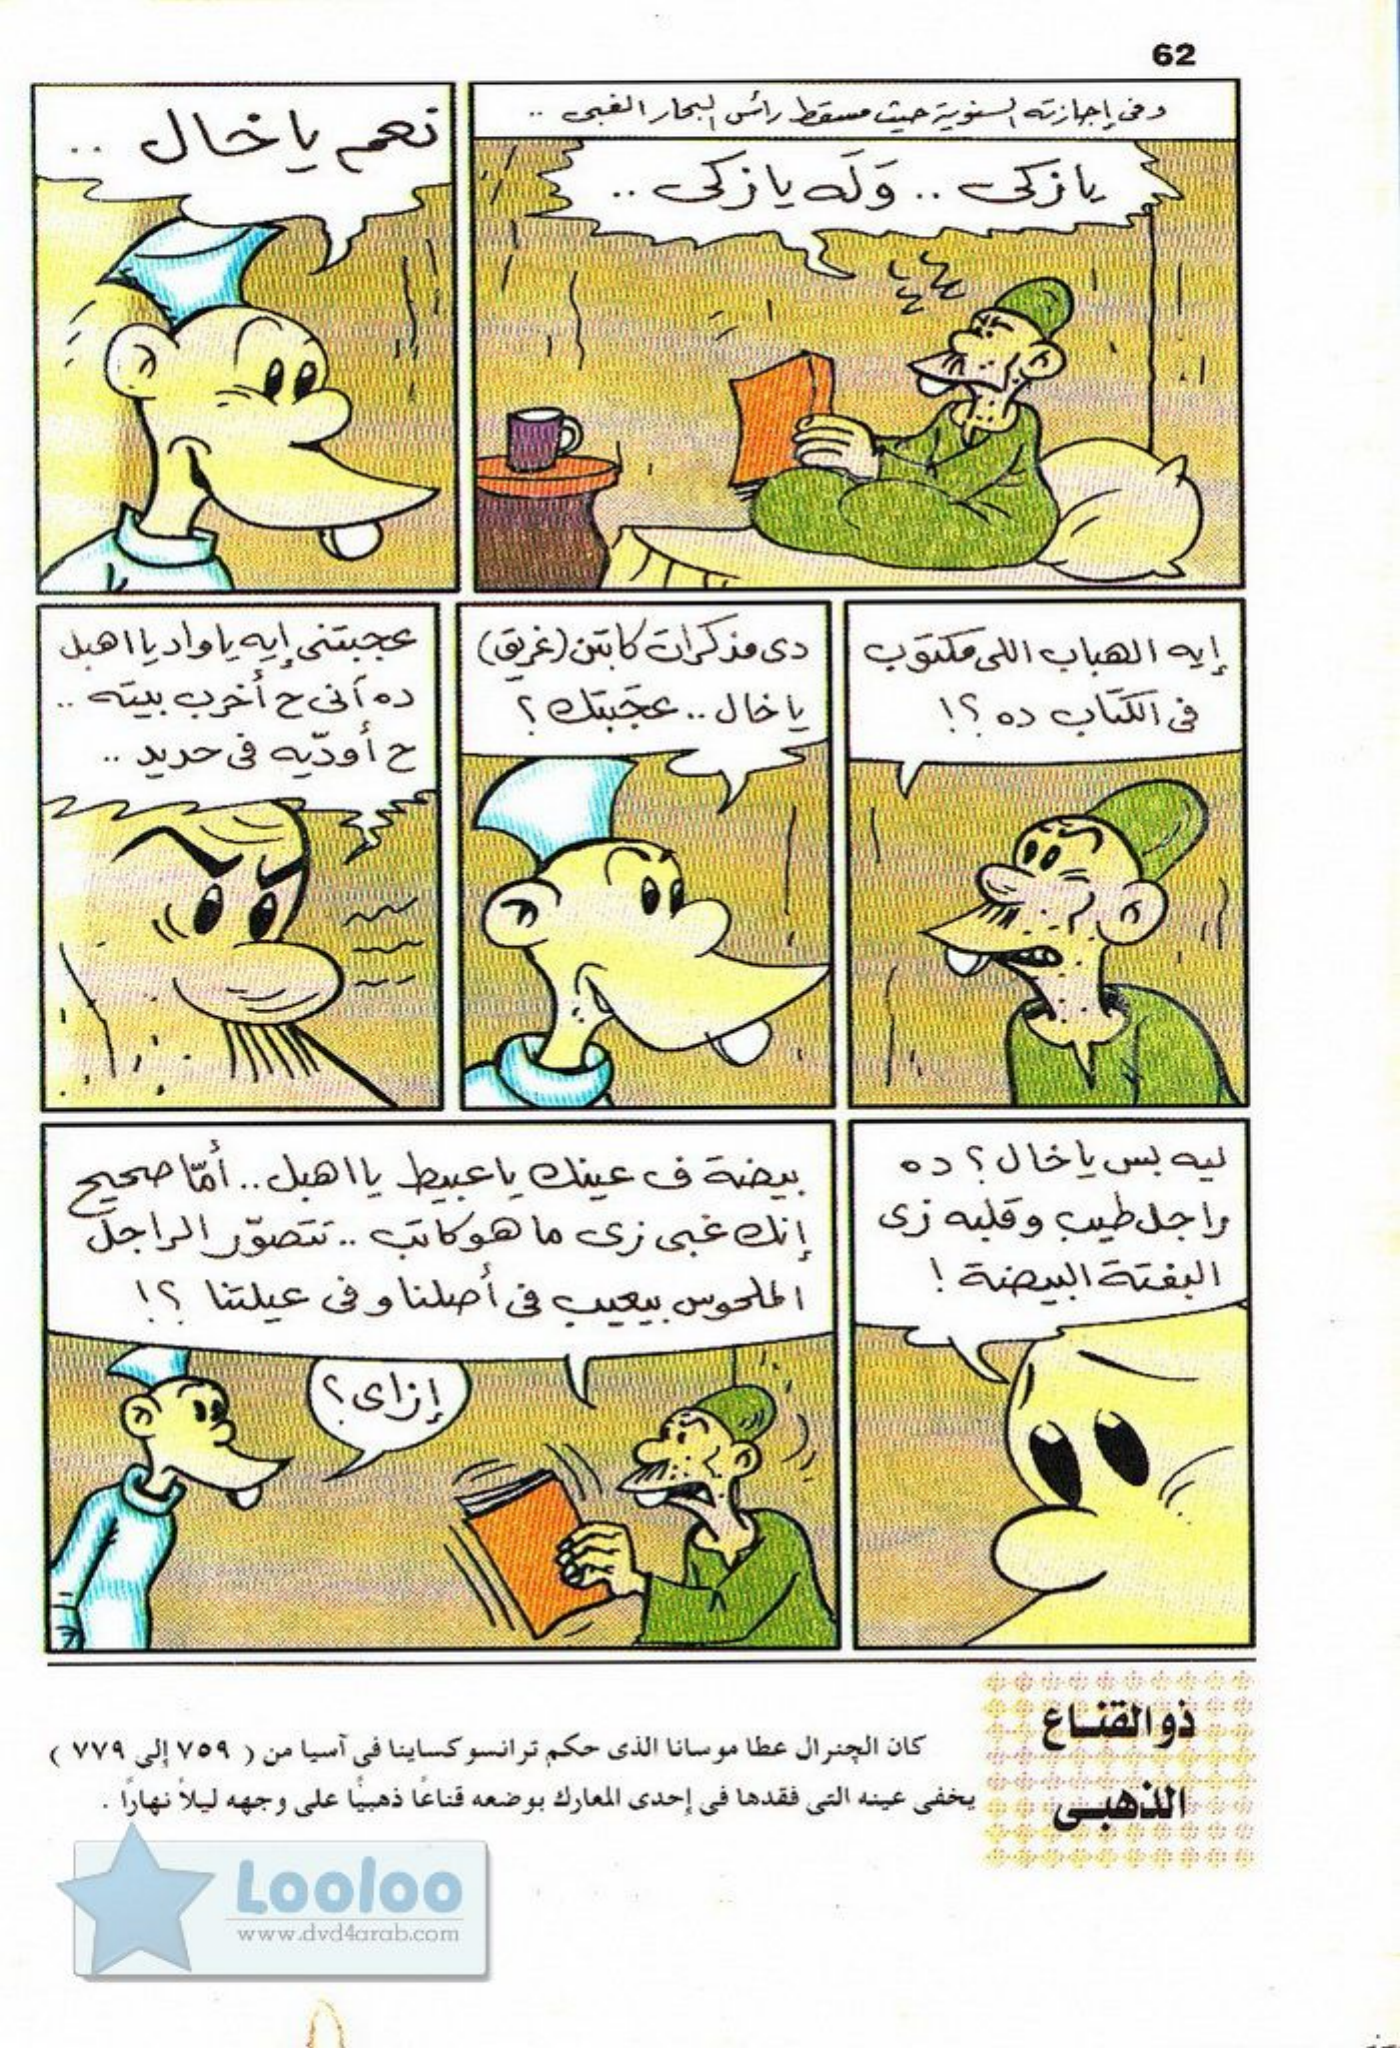 62
وفى إجازته السنوية حيث مسقط رأس البحار الغبى ..
يا زكى .. وَلَه يا زكى ..
نعم يا خال ..
إيه الهباب اللى مكتوب
فى الكتاب ده ؟!
دى مذكرات كابتن (غريق)
يا خال .. عجَبتك ؟
عجبتنى إيه يا واد يا اهبل
ده أنى ح أخرب بيته ..
ح أودّيه فى حديد ..
ليه بس يا خال ؟ ده
راجل طيب وقلبه زى
البفتة البيضة !
بيضة ف عينك يا عبيط يا اهبل .. أمّا صحيح
إنك غبى زى ما هو كاتب .. تتصوّر الراجل
الملحوس بيعيب فى أصلنا و فى عيلتنا ؟!
إزاى ؟
ذو القناع
الذهبى
كان الچنرال عطا موسانا الذى حكم ترانسوكساينا فى آسيا من ( ٧٥٩ إلى ٧٧٩ )
يخفى عينه التى فقدها فى إحدى المعارك بوضعه قناعًا ذهبيًا على وجهه ليلاً نهارًا .
Looloo
www.dvd4arab.com